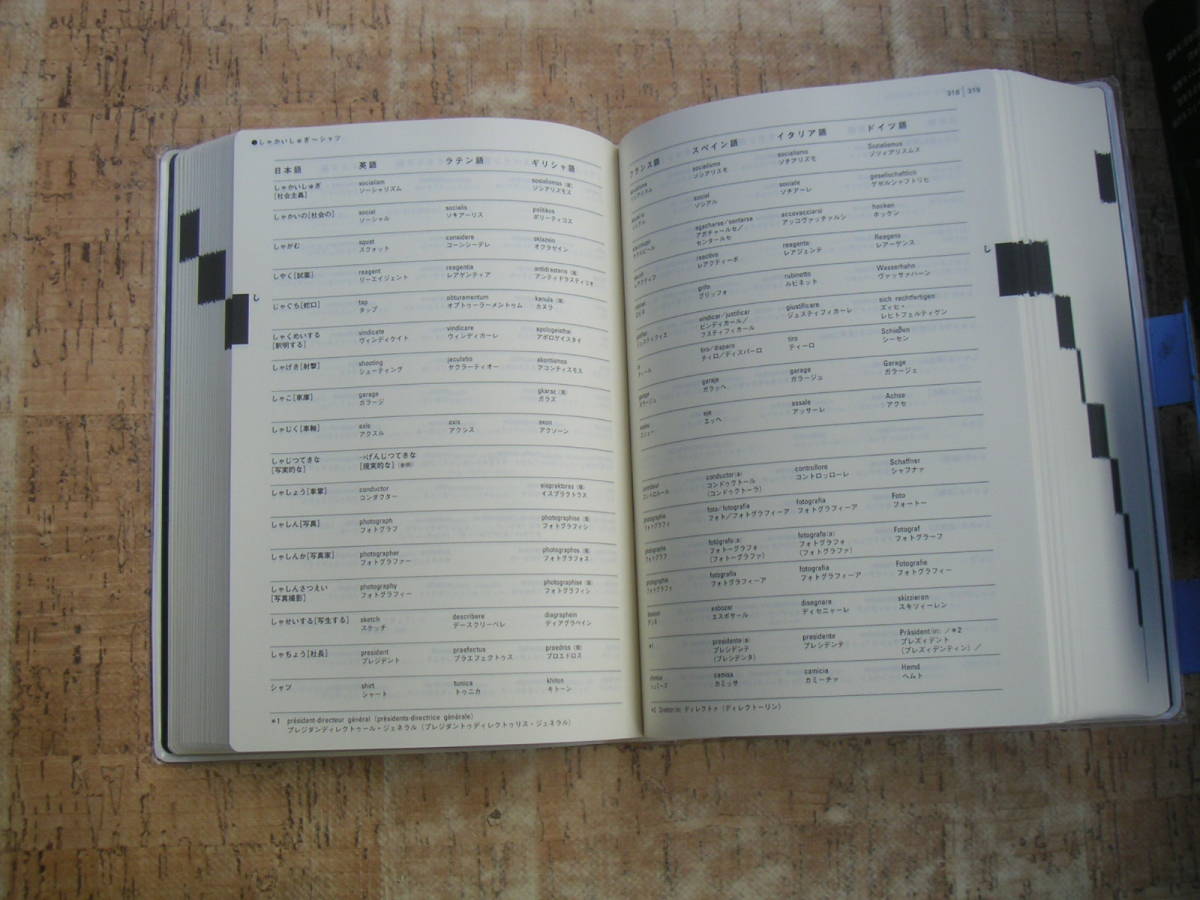 ●しゃかいしゅぎ～シャツ
日本語 英語 ラテン語 ギリシャ語
しゃかいしゅぎ socialism socialismus (現)
[社会主義] ソーシャリズム ソシアリズモス
しゃかいの[社会の] social socialis politikos
ソーシャル ソキアーリス ポリーティコス
しゃがむ squat considere oklazein
スクォット コーンシーデレ オクラゼイン
しやく[試薬] reagent reagentia
リーエイジェント レアゲンティア アンティドラスティリオ
じゃぐち[蛇口] tap obturamentum kanula (現)
タップ オブトゥーラーメントゥム カヌラ
しゃくめいする vindicate vindicare apologeisthai
[釈明する] ヴィンディケイト ヴィンディカーレ アポロゲイスタイ
しゃげき[射撃] shooting jaculatio akontismos
シューティング ヤクラーティオー アコンティスモス
しゃこ[車庫] garage gkaraz (現)
ガラージ ガラズ
しゃじく[車軸] axis axis axon
アクスル アクシス アクソーン
しゃじつてきな →げんじつてきな
[写実的な] [現実的な] (参照)
しゃしょう[車掌] conductor eispraktoras (現)
コンダクター イスプラクトラス
しゃしん[写真] photograph
フォトグラフ フォトグラフィシ
しゃしんか[写真家] photographer photographos (現)
フォトグラファー フォトグラフォス
しゃしんさつえい photography
[写真撮影] フォトグラフィー フォトグラフィシ
しゃせいする[写生する] sketch describere diagraphein
スケッチ デースクリーベレ ディアグラペイン
しゃちょう[社長] president praefectus proedros (現)
プレジデント プラエフェクトゥス プロエドロス
シャツ shirt tunica khiton
シャート トゥニカ キトーン
*1 président-directeur général (présidents-directrice générale)
プレジダンディレクトゥール・ジェネラル (プレジダントゥディレクトゥリス・ジェネラル)
318 | 319
フランス語 スペイン語 イタリア語 ドイツ語
socialismo socialismo Sozialismus
ソシアリスモ ソチアリズモ ゾツィアリスムス
social sociale gesellschaftlich
ソシアル ソチアーレ ゲゼルシャフトリヒ
agacharse/sentarse accovacciarsi hocken
アガチャールセ/ アッコヴァッチァルシ ホッケン
センタールセ
reactivo reagente Reagens
レアクティーボ レアジェンテ レアーゲンス
grifo rubinetto Wasserhahn
グリッフォ ルビネット ヴァッサァハーン
vindicar/justificar giustificare sich rechtfertigen
ビンディカール/ ジュスティフィカーレ ズィヒ・
フスティフィカール レヒトフェルティゲン
tiro/disparo tiro Schießen
ティロ/ディスパーロ ティーロ シーセン
garaje garage Garage
ガラッヘ ガラージュ ガラージュ
eje assale Achse
エッヘ アッサーレ アクセ
conductor(a) controllore Schaffner
コンドゥクトール コントロッローレ シャフナァ
(コンドゥクトーラ)
photographie foto/fotografía fotografia Foto
フォト/フォトグラフィーア フォトグラフィーア フォートー
photographe fotógrafo(a) fotografo(a) Fotograf
フォトグラフ フォトーグラフォ フォトグラフォ フォトグラーフ
(フォトーグラファ) (フォトグラファ)
photographie fotografía fotografia Fotografie
フォトグラフィーア フォトグラフィーア フォトグラフィー
esbozar disegnare skizzieren
エスボサール ディセニャーレ スキツィーレン
*1 presidente(a) presidente Präsident(in) /*2
プレシデンテ プレシデンテ プレズィデント
(プレシデンタ) (プレズィデンティン)/
camisa camicia Hemd
カミッサ カミーチァ ヘムト
*2 Direktor(in) ディレクトァ (ディレクトーリン)
し
し